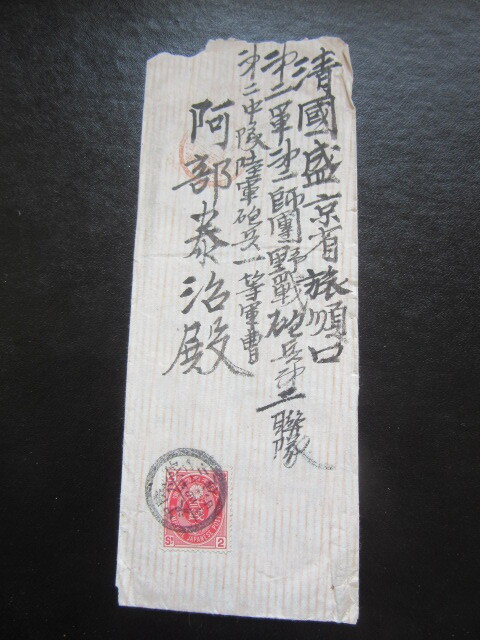 清國盛京省旅順口
第二軍第二師團野戰砲兵第二聯隊
第二中隊陸軍砲兵一等軍曹
阿部泰治殿
JAPANESE
Sn 2